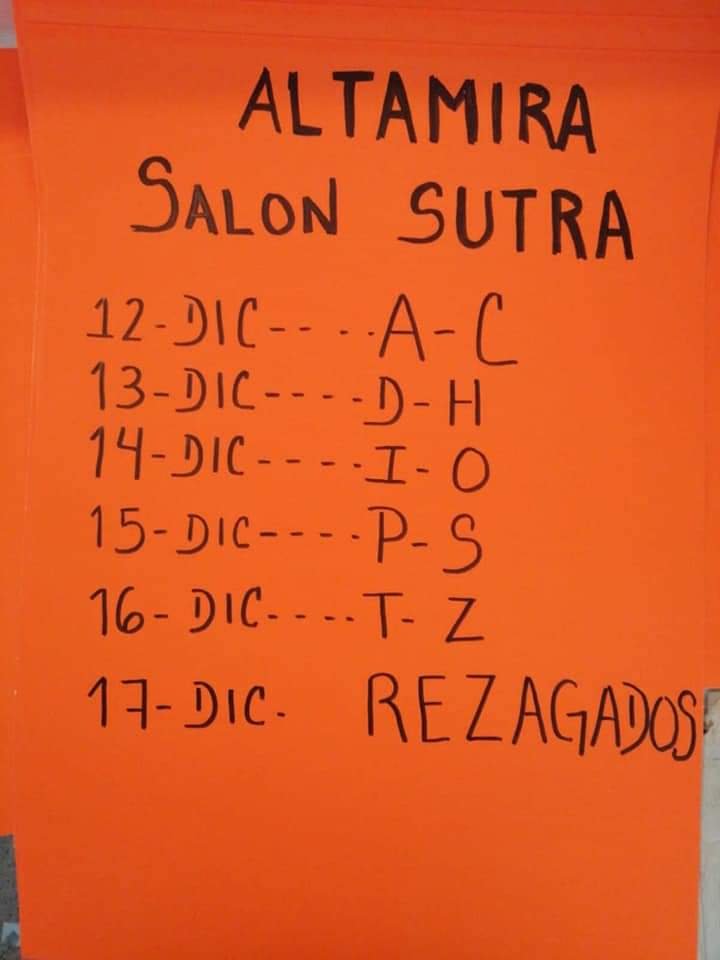 ALTAMIRA
SALON SUTRA
12-DIC-----A-C
13-DIC-----D-H
14-DIC-----I-O
15-DIC-----P-S
16-DIC-----T-Z
17-DIC. REZAGADOS